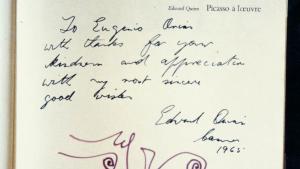 Edward Quinn Picasso à l'œuvre
To Eugenio
with thanks for your
kindness and appreciation
with my most sincere
good wishes
Edward Quinn
Cannes
1965